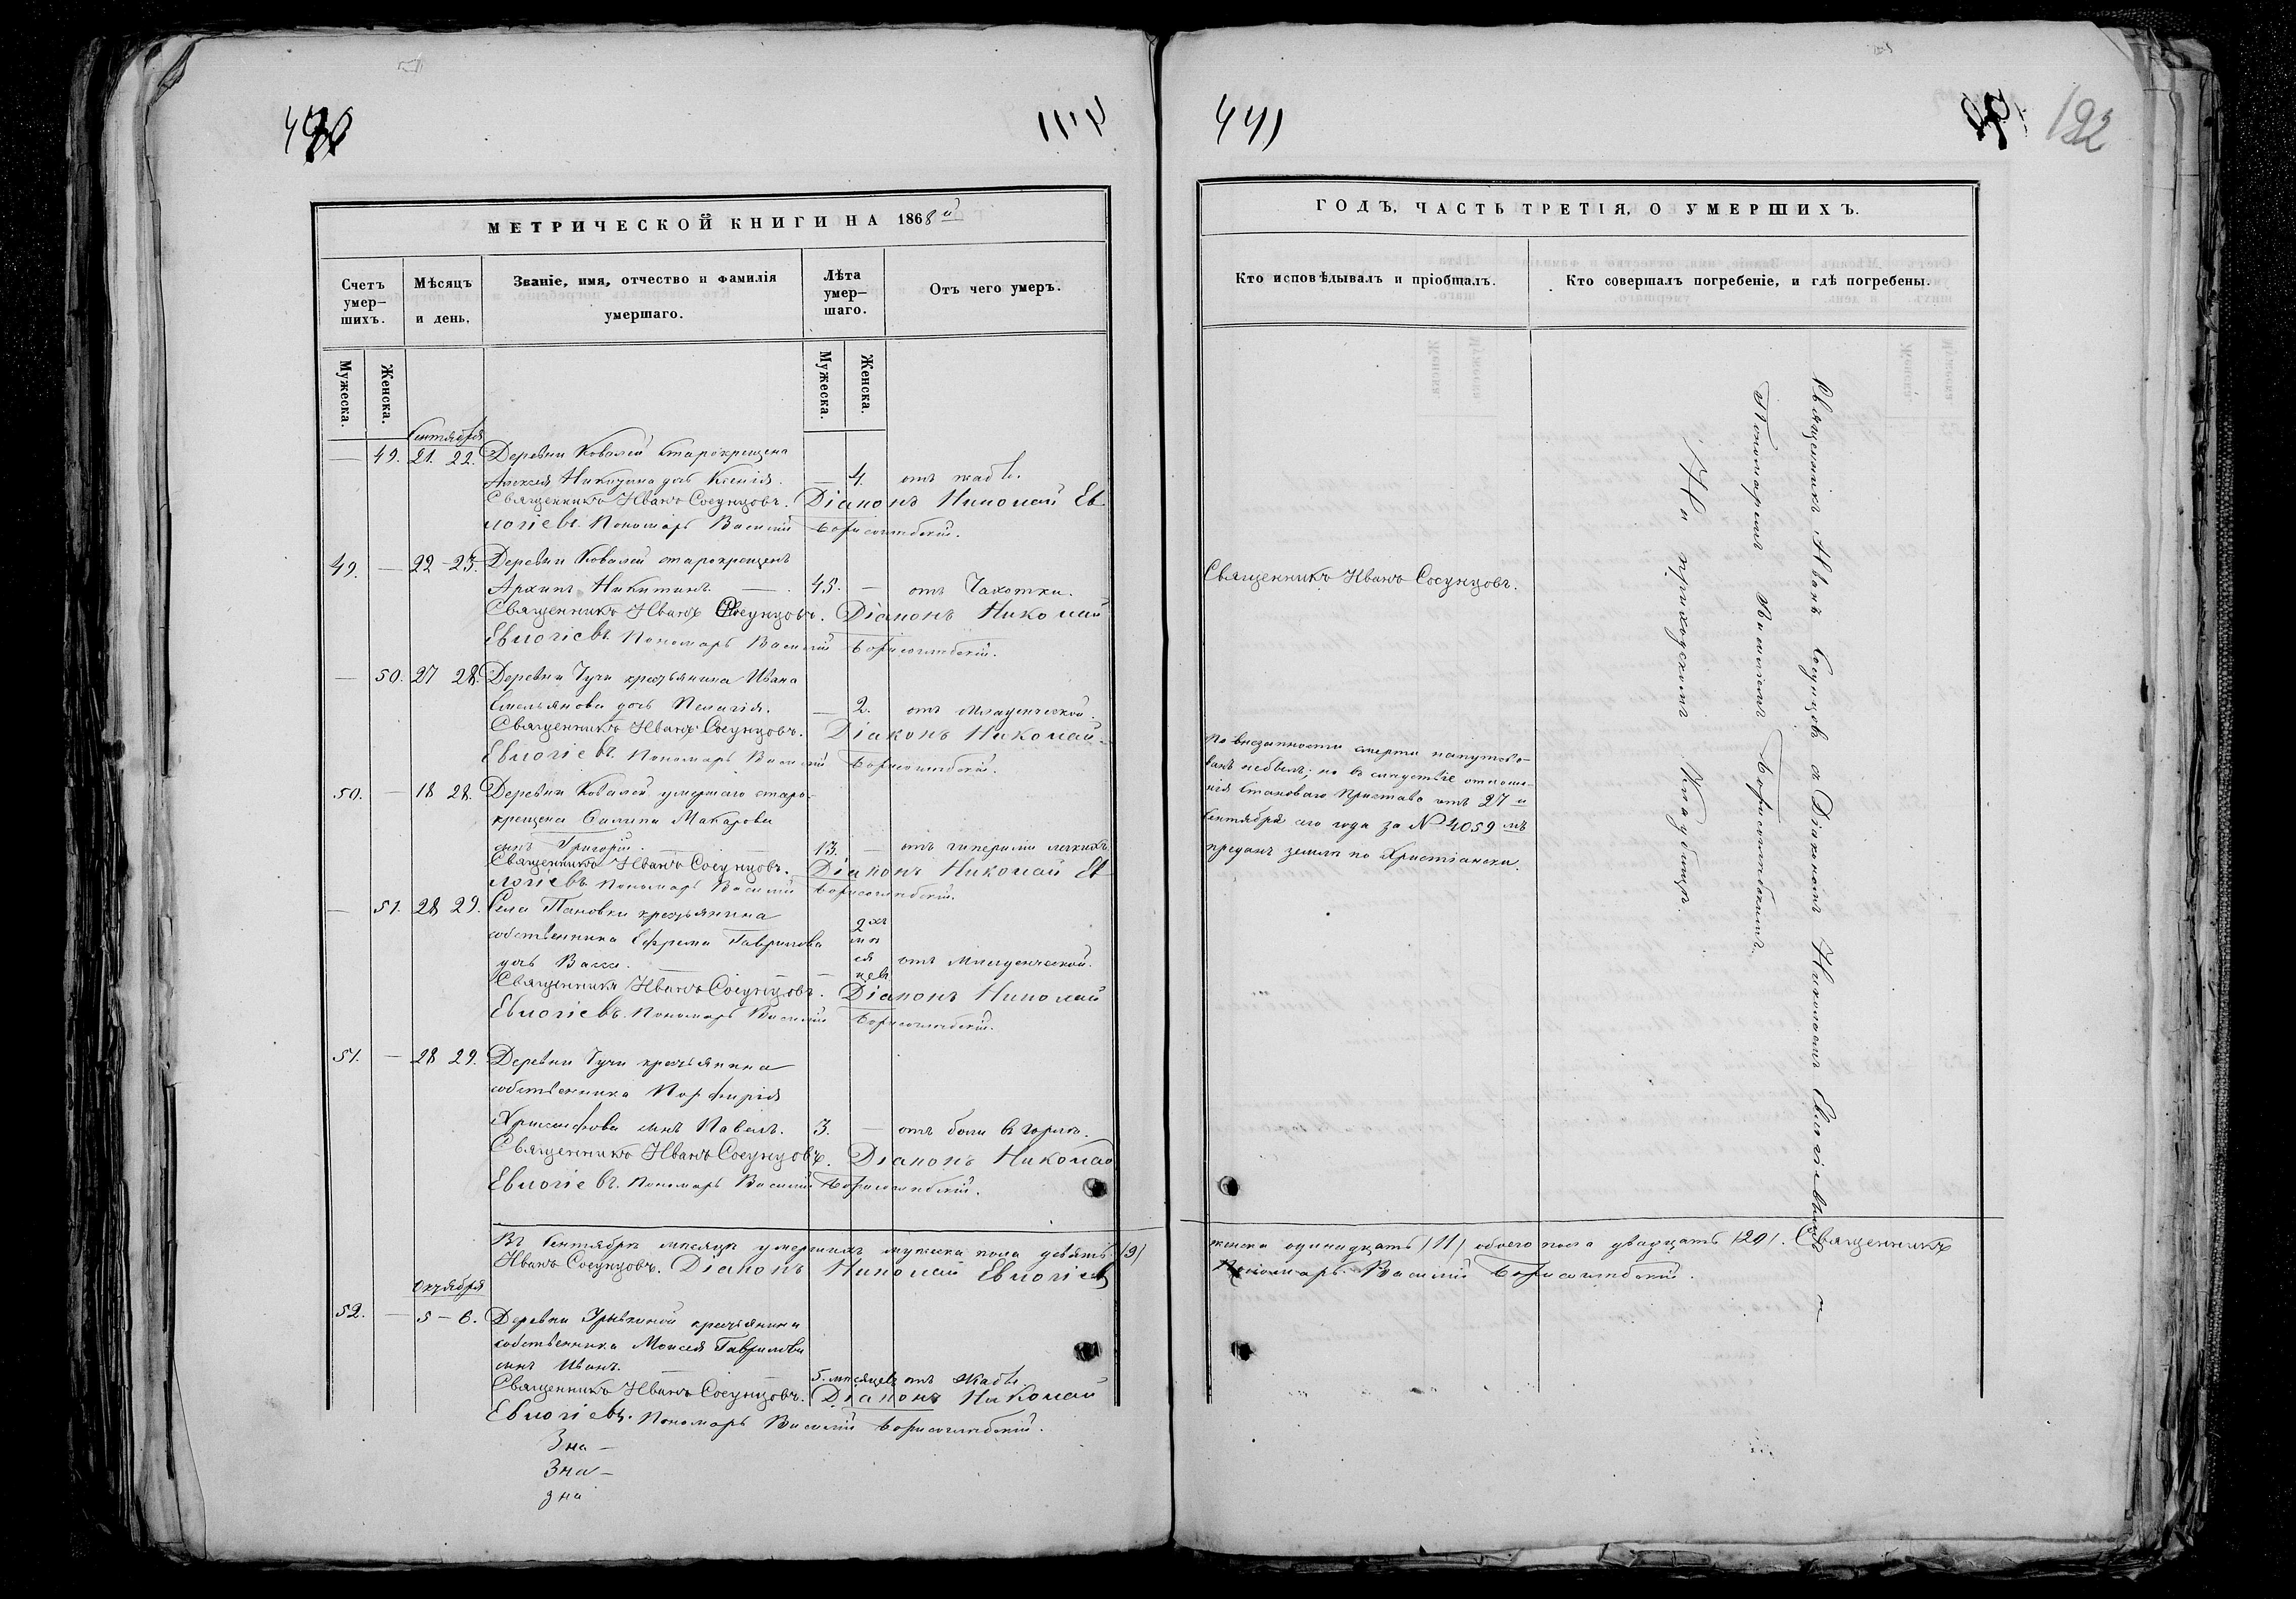 441
122
МЕТРИЧЕСКОЙ КНИГИ НА 1868й
Счетъ умершихъ.
Мѣсяцъ и день.
Званіе, имя, отчество и фамилія умершаго.
Лѣта умершаго.
Отъ чего умеръ.
Мужеска.
Женска.
Мужеска.
Женска.
Сентября
— 49. 21. 22. Деревни Ковалей старокрещена
Алексея Никитина дочь Ксенія. — 4 отъ жабы.
Священникъ Иванъ Сосунцовъ. Діаконъ Николай Ев
логіевъ. Пономарь Василій Борисоглебскій.
49. — 22 - 23. Деревни Ковалей старокрещенъ
Архипъ Никитинъ. — 45. — отъ Чахотки.
Священникъ Иванъ Сосунцовъ. Діаконъ Николай
Евлогіевъ. Пономарь Василій Борисоглебскій.
— 50. 27 28. Деревни Чучи крестьянина Ивана
Емельянова дочь Пелагія. — 2. отъ Младенческой.
Священникъ Иванъ Сосунцовъ. Діаконъ Николай
Евлогіевъ. Пономарь Василій Борисоглебскій.
50. — 18 28. Деревни Ковалей умершаго старо-
крещена Макарова
сынъ Григорій. 13. — отъ легкихъ.
Священникъ Иванъ Сосунцовъ. Діаконъ Николай Ев
логіевъ. Пономарь Василій Борисоглебскій.
— 51. 28 29. Села Пановки крестьянина
собственника Ефрема Гаврилова
дочь Васса. — — 2хъ мѣсяцевъ отъ Младенческой.
Священникъ Иванъ Сосунцовъ. Діаконъ Николай
Евлогіевъ. Пономарь Василій Борисоглебскій.
51. — 28 29. Деревни Чучи крестьянина
собственника Порфирія
Хрисанфова сынъ Павелъ. 3. — отъ боли в горлѣ.
Священникъ Иванъ Сосунцовъ. Діаконъ Николай
Евлогіевъ. Пономарь Василій Борисоглебскій.
Въ Сентябрѣ мѣсяцѣ умершихъ мужеска пола девять /9/
Иванъ Сосунцовъ. Діаконъ Николай Евлогіевъ
Октября
52. — 5 - 6. Деревни крестьянина
собственника Моисея Гаврилова
сынъ Иванъ. 5. мѣсяцевъ отъ жабы
Священникъ Иванъ Сосунцовъ. Діаконъ Николай
Евлогіевъ. Пономарь Василій Борисоглебскій.
Зна -
Зна -
зна
ГОДЪ, ЧАСТЬ ТРЕТІЯ, О УМЕРШИХЪ.
Кто исповѣдывалъ и пріобщалъ.
Кто совершалъ погребеніе, и гдѣ погребены.
Священникъ Иванъ Сосунцовъ.
по внезапности смерти напутство-
ванъ небылъ; но в следствіе отноше-
нія Становаго Пристава отъ 27 и
Сентября сего года за № 4059 мъ
преданъ земли по Христіански.
Священникъ Иванъ Сосунцовъ с Діакономъ Николаемъ Евлогіевымъ и
Пономаремъ Василіемъ Борисоглебскимъ.
На приходскомъ Кладбищѣ.
женска одинадцать /11/ обоего пола двадцать /20/. Священникъ
Пономарь Василій Борисоглебскій.